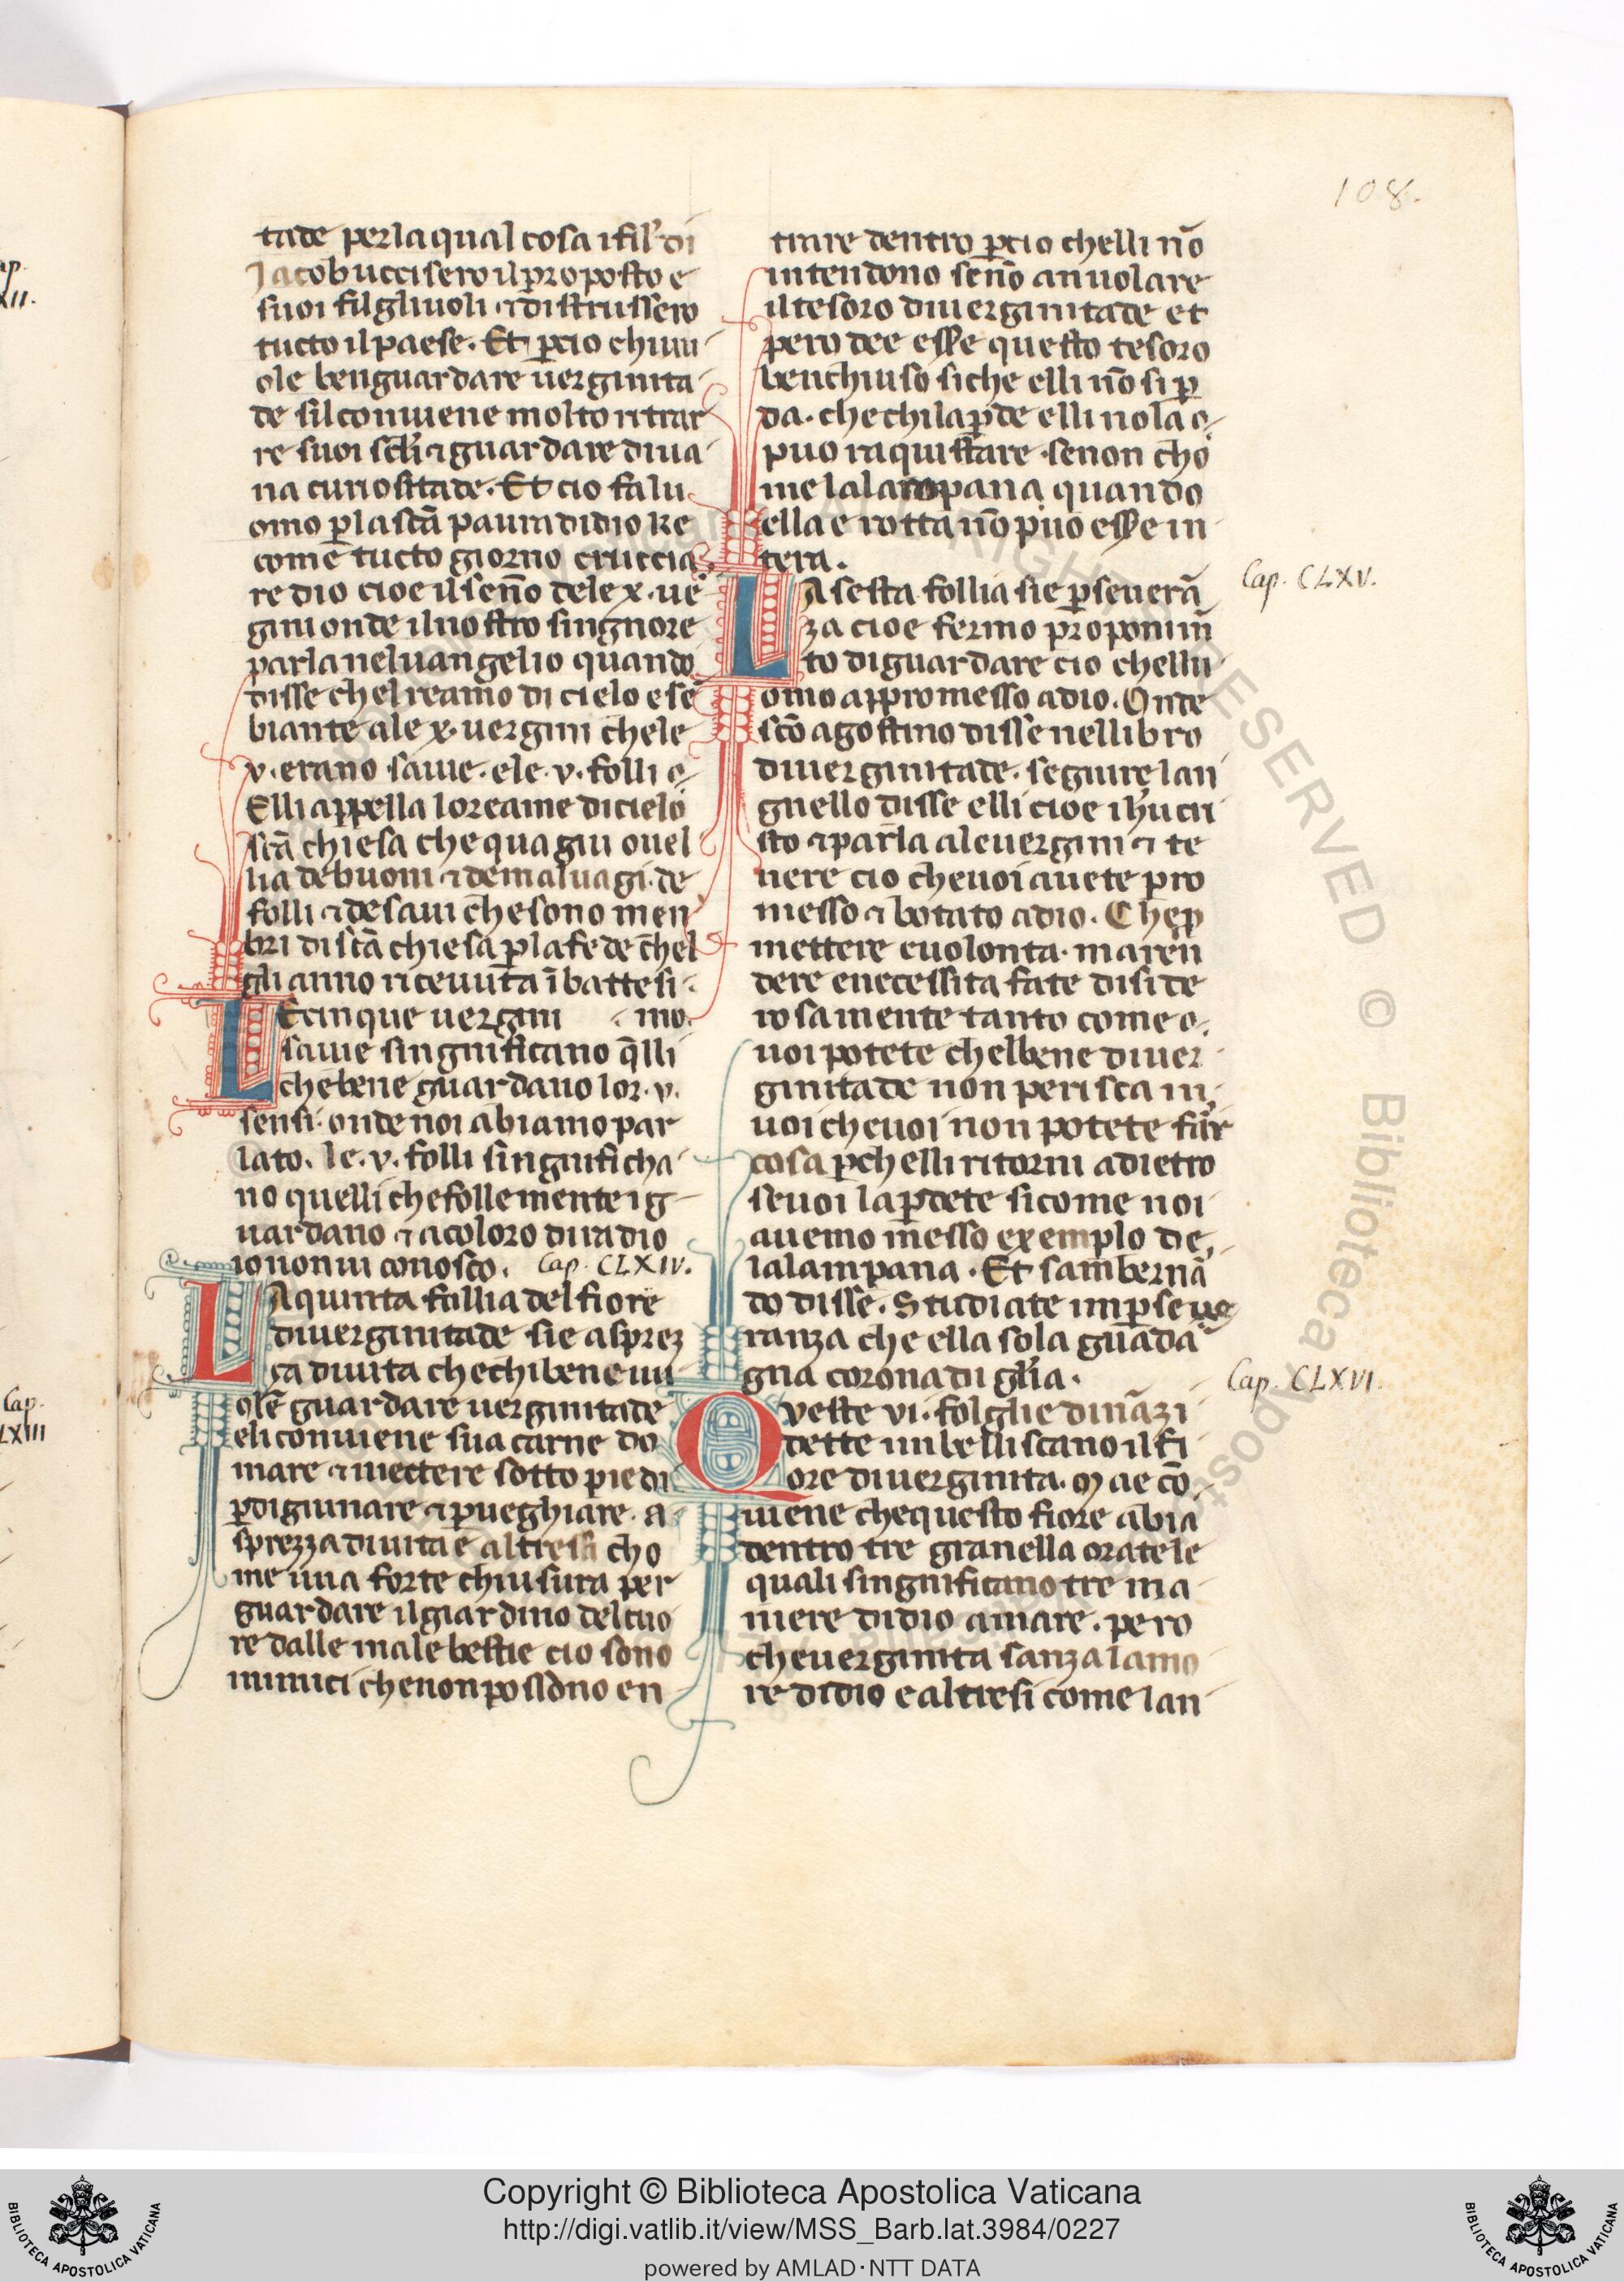 108.
tade perlaqual cosa ifil' di
Jacob uccisero ilproposto e
suoi filgliuoli ⁊ distrussero
tucto ilpaese. Et p̱cio chiuu
ole benguardare uerginita
de silconuiene molto ritrar
re suoi sc̄li ⁊ guardare diua
na curiositade. Et cio fa lu
omo p̱lasc̄a paura didio ke
come tucto giorno cruccia
re dio cioe il sen̄o dele x. ue
gini onde ilnostro singnore
parla neluangelio quando
disse chel reamo di cielo e se
biante ale x. uergini chele
v. erano sauie. ele. v. folli e
Elli appella loreame dicielo
sc̄a chiesa che qua giu ouel
lia debuoni ⁊ demaluagi. de
folli ⁊ desaui chesono men
bri di sc̄a chiesa p̱lafede chel
gli anno riceuuta ībattesi
Le cinque uergini .mo.
sauie singnificano q̄lli
che bene guardauo lor. v.
sensi. onde noi abiamo par
lato. le. v. folli singnificha
no quelli che follemente ig
uardano ⁊ acoloro dira dio
io nonui conosco. Cap. CLXIV.
LA quinta follia del fiore
diuerginitade sie asprez
ça diuita che chibene uu
ole guardare uerginitade
eli conuiene sua carne do
mare ⁊ mettere sotto piedi
p̱digiunare ⁊ p̱ueghiare. a
sprezza diuita ē altresi cho
me una forte chiusura per
guardare ilgiardino delcuo
re dalle male bestie cio sono
inimici chenon possono en
trare dentro p̱cio chelli nō
intendono sen̄o an uolare
il tesoro diuerginitade et
pero dee esse questo tesoro
benchiuso siche elli nō si p̱
da. che chilap̱de elli nola e
puo raquistare. senon cho
me lalampana quando
ella e rotta nō puo esse in
tera.
LA sesta follia sie p̱seuerā Cap. CLXV.
za cioe fermo proponim̄
to diguardare cio chellu
omo appromesso adio. Onde
sc̄o agostino disse nellibro
diuerginitade. seguire lan
gnello disse elli cioe ihū cri
sto ⁊ parla aleuergini ⁊ te
nere cio cheuoi auete pro
messo ⁊ botato adio. Chep̱
mettere euolonta. maren̄
dere enecessita fate diside
rosamente tanto come e
uoi potete chelbene diuer
ginitade non perisca in
uoi cheuoi non potete far
cosa p̱chelli ritorni adietro
seuoi lap̱dete sicome noi
auemo messo exemplo de
lalampana. Et sambernā
do disse. Studiate imp̱seue
ranza che ella sola guada
gna corona di gl̄ia.
Queste vi. folglie dināzi Cap. CLXVI.
dette imbelliscano il fi
ore diuerginita. Mae cō
uiene chequesto fiore abia
dentro tre granella orate le
quali singnificano tre ma
niere didio amare. pero
cheuerginita sanza lamo
re didio e altresi come lan
ap.
XII.
Cap.
LXIII
Copyright © Biblioteca Apostolica Vaticana
http://digi.vatlib.it/view/MSS_Barb.lat.3984/0227
powered by AMLAD·NTT DATA
BIBLIOTECA APOSTOLICA VATICANA
BIBLIOTECA APOSTOLICA VATICANA